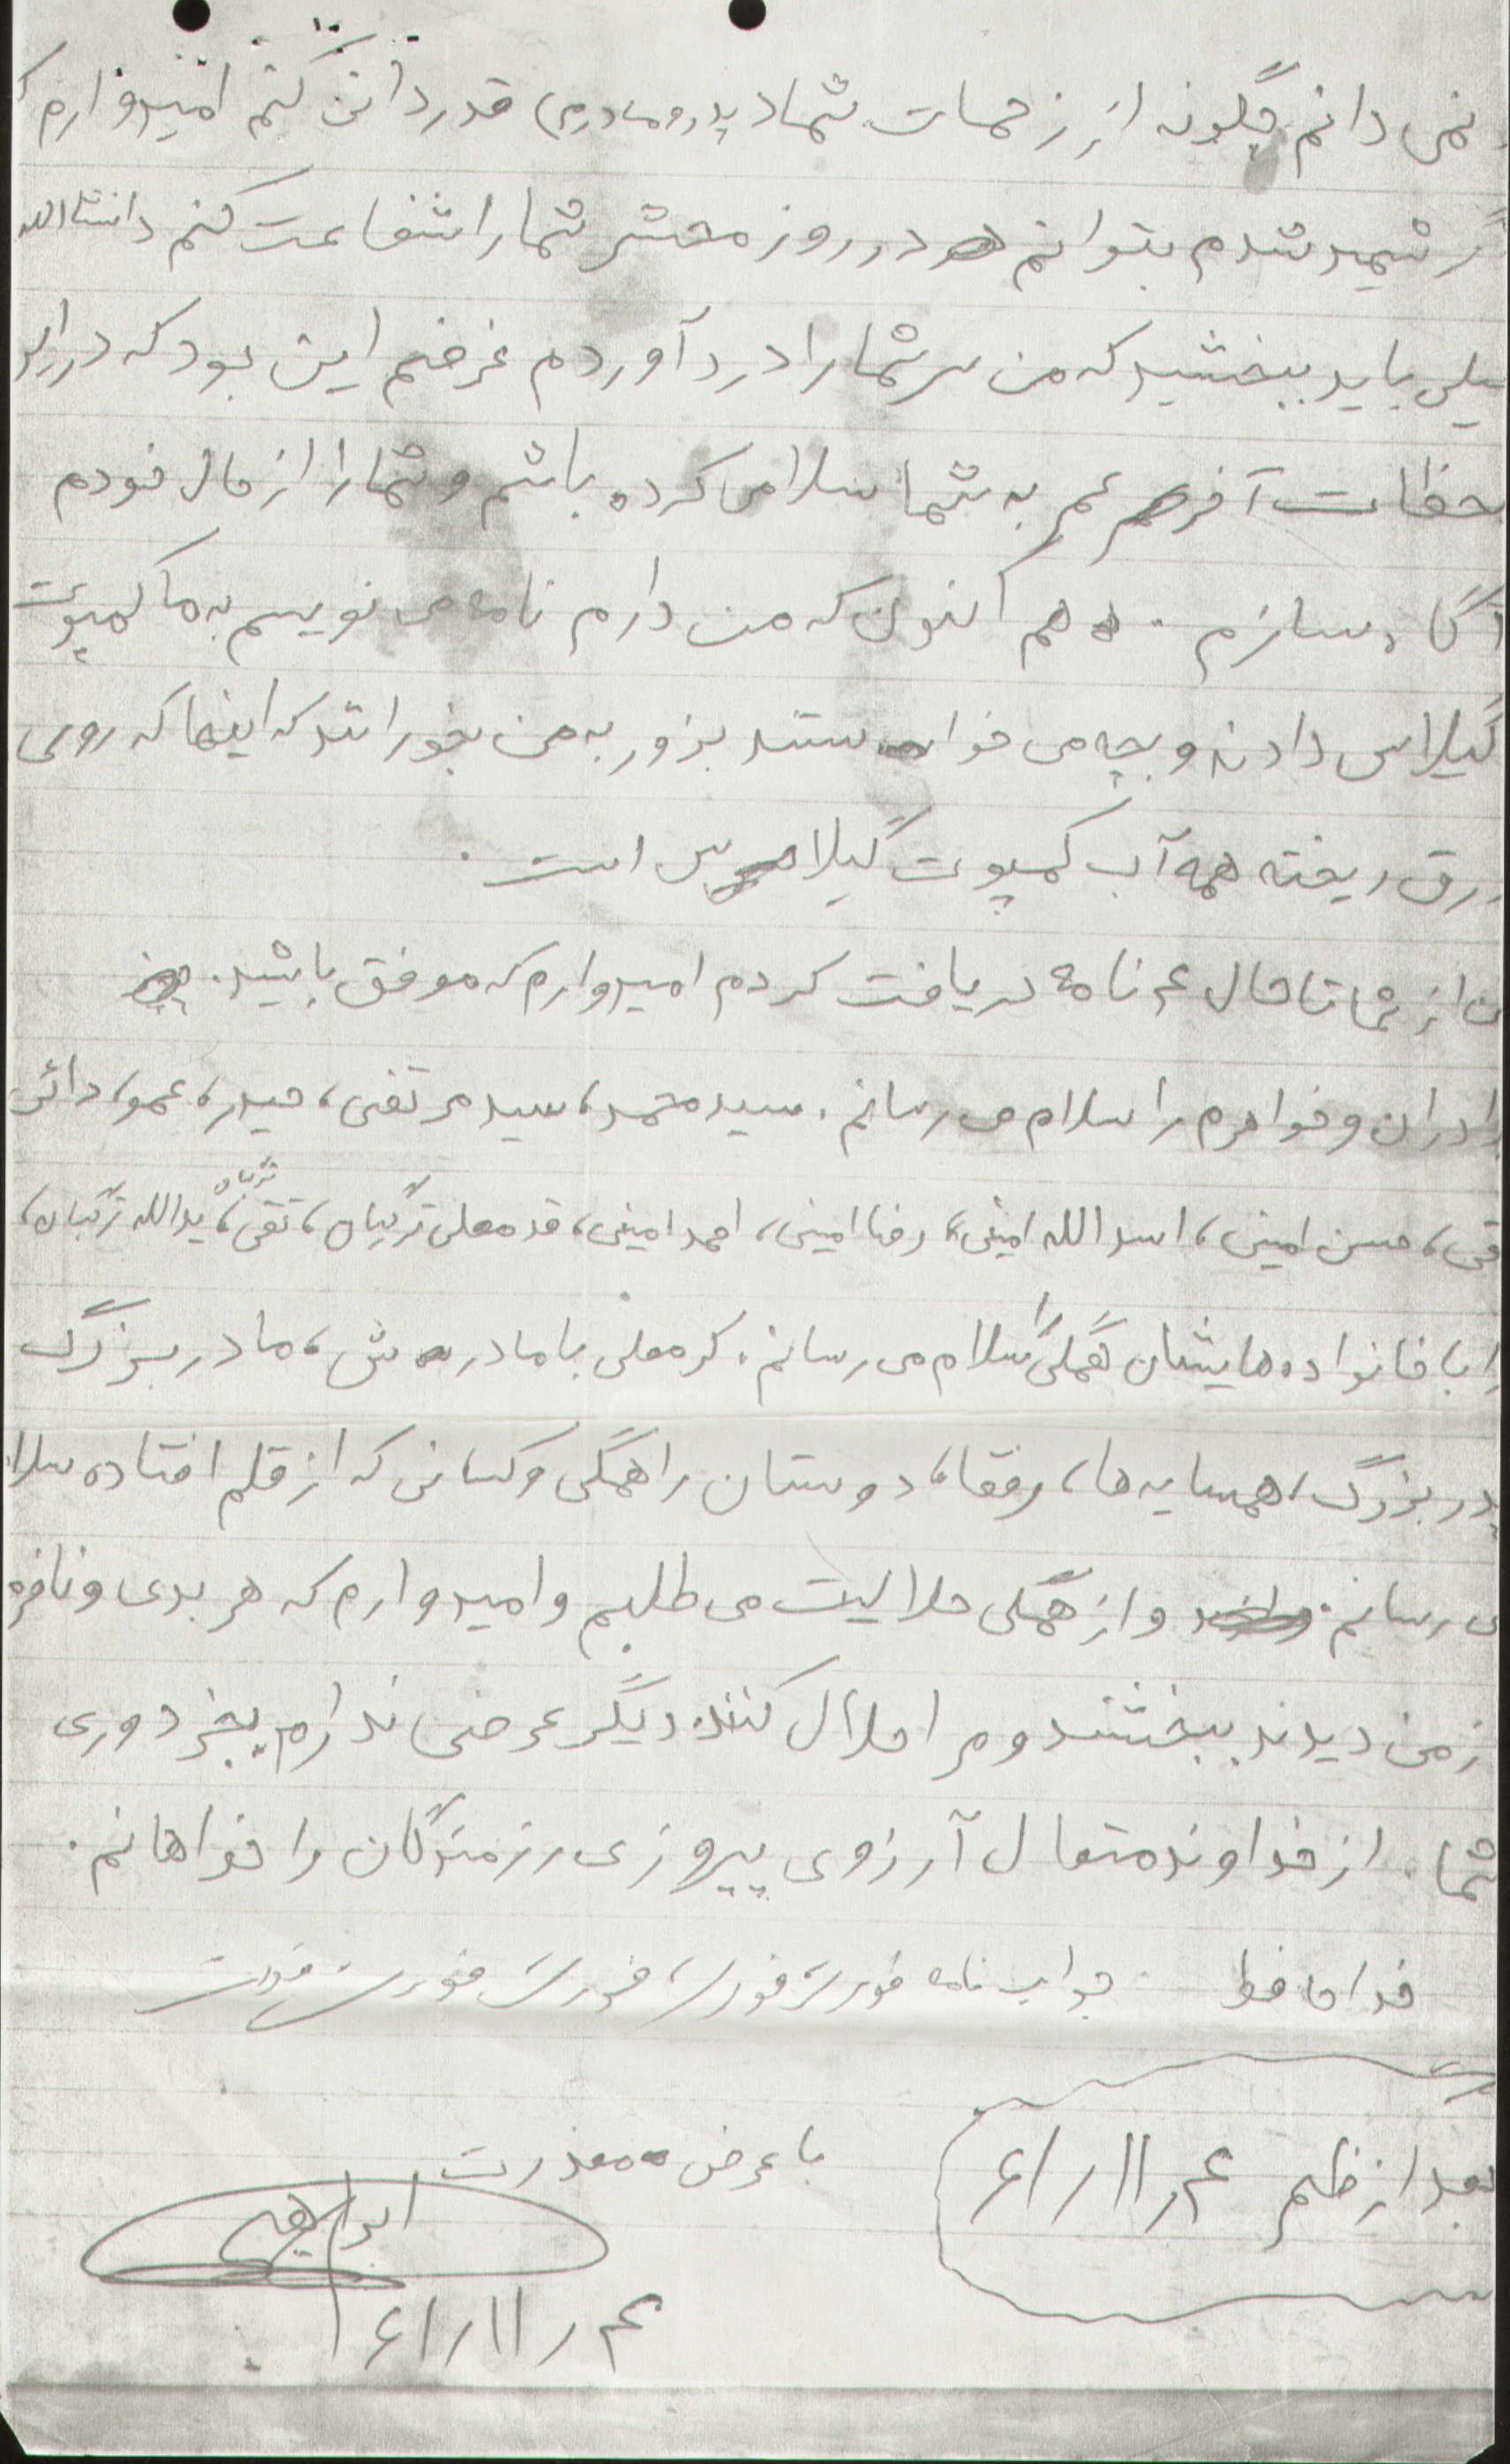 نمی دانم چگونه از زحمات شما (پدر و مادرم) قدردانی کنم امیدوارم
شهید شدم بتوانم در روز محشر شما را شفاعت کنم انشاالله
باید ببخشید که من سر شما را درد آوردم غرضم این بود که در
آخر عمر به شما سلامی کرده باشم و شما را از حال خودم
آگاه سازم. هم اکنون که من دارم نامه می نویسم به ما کمپوت
گیلاس دادند و بچه می خواستند بزور به من بخورانند که اینها که روی
ورق ریخته همه آب کمپوت گیلاس است.
از شما تا حال ۴ نامه دریافت کردم امیدوارم که موفق باشید.
برادران و خواهرم را سلام می رسانم. سید محمد، سید مرتضی، حیدر، عمو، دائی
تقی، حسن امینی، اسدالله امینی، رضا امینی، احمد امینی، قدمعلی ترکیان، تقی ترکیان، یدالله ترکیان،
را با خانواده هایشان همگی را سلام می رسانم. کرمعلی با مادرش، مادر بزرگ
پدر بزرگ، همسایه ها، رفقا، دوستان را همگی و کسانی که از قلم افتاده سلام
می رسانم. و از همگی حلالیت می طلبم و امیدوارم که هر بدی و
از من دیدند ببخشند و مرا حلال کنند. دیگر عرضی ندارم بجز دوری
شما. از خداوند متعال آرزوی پیروزی رزمندگان را خواهانم.
خداحافظ جواب نامه فوری فوری فوری فوری فوری
بعد از ظهر ۶۱/۱۱/۴
با عرض معذرت
ابراهیم
۶۱/۱۱/۴